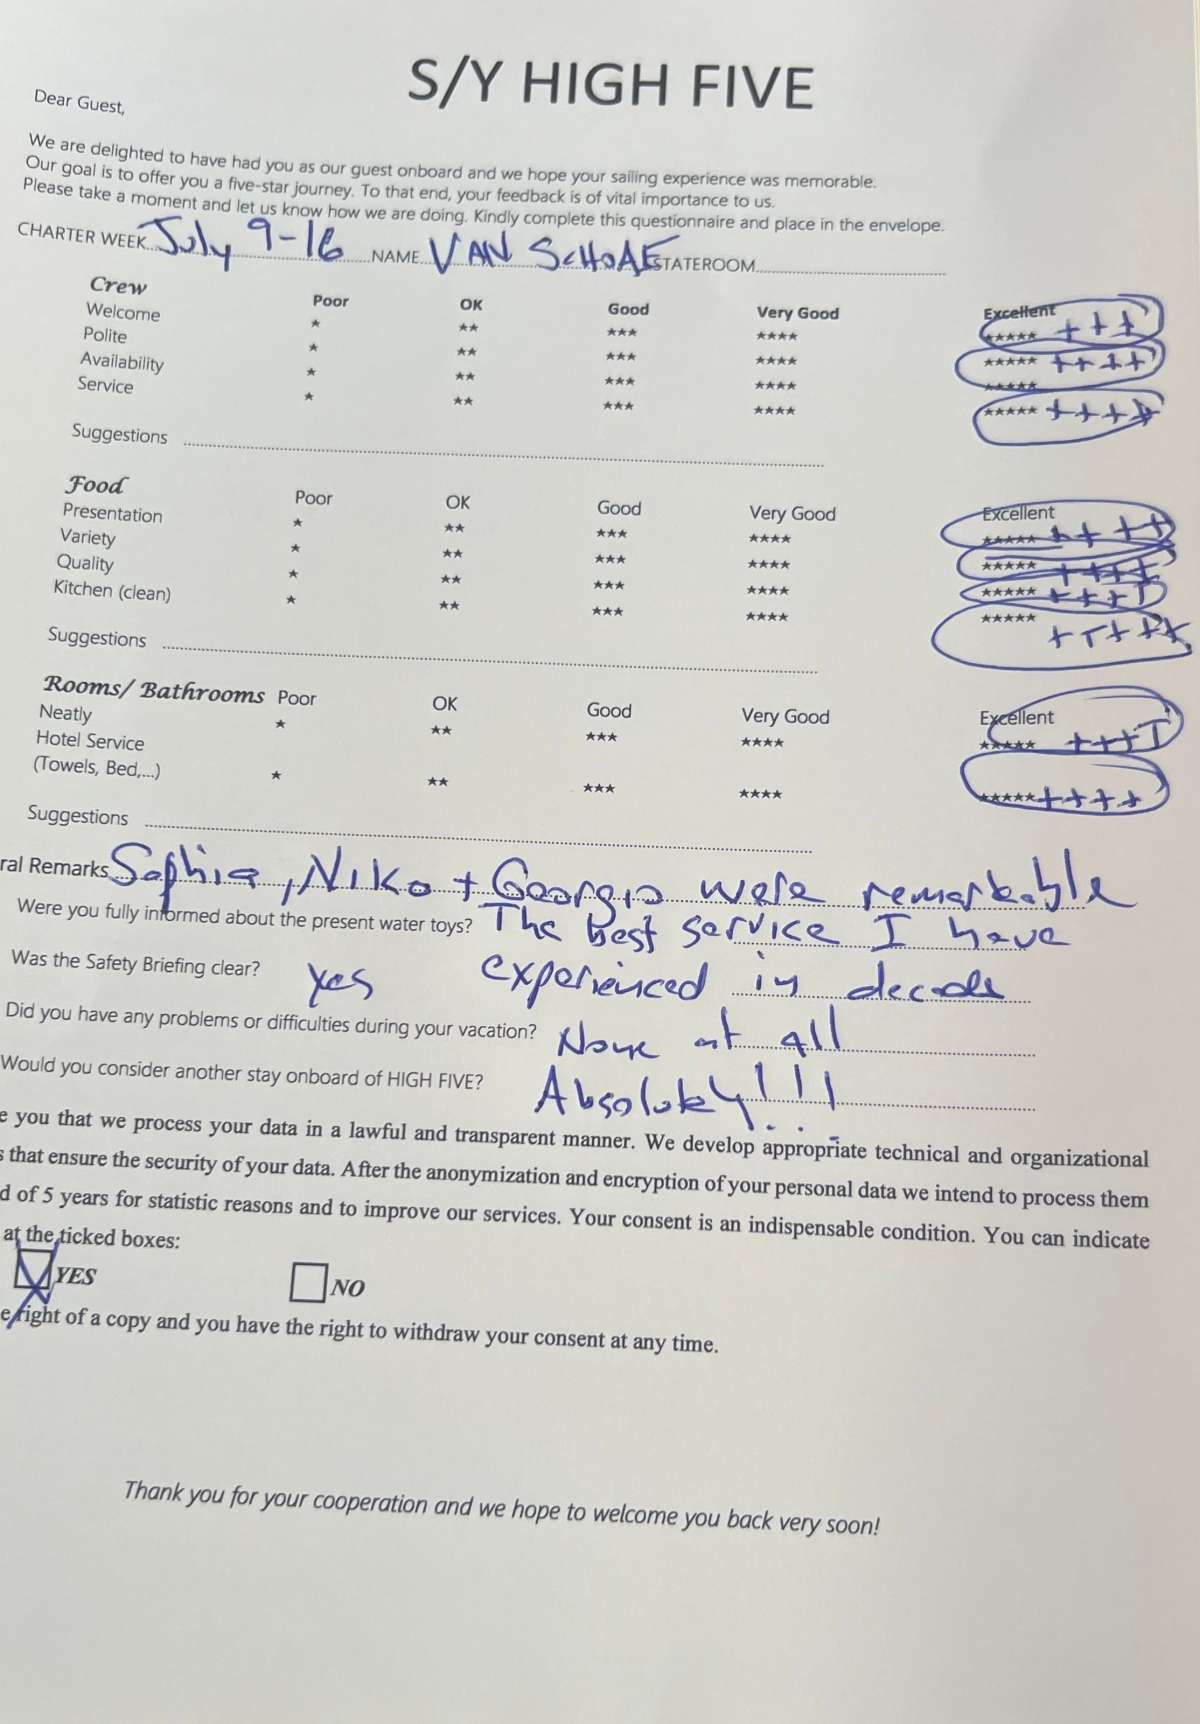 S/Y HIGH FIVE
Dear Guest,
We are delighted to have had you as our guest onboard and we hope your sailing experience was memorable.
Our goal is to offer you a five-star journey. To that end, your feedback is of vital importance to us.
Please take a moment and let us know how we are doing. Kindly complete this questionnaire and place in the envelope.
CHARTER WEEK July 9-16 NAME VAN SCHOAE STATEROOM
Crew Poor OK Good Very Good Excellent
Welcome ★ ★★ ★★★ ★★★★ ★★★★★ +++
Polite ★ ★★ ★★★ ★★★★ ★★★★★ ++++
Availability ★ ★★ ★★★ ★★★★ ★★★★★
Service ★ ★★ ★★★ ★★★★ ★★★★★ ++++
Suggestions
Food Poor OK Good Very Good Excellent
Presentation ★ ★★ ★★★ ★★★★ ★★★★★ ++++
Variety ★ ★★ ★★★ ★★★★ ★★★★★ ++++
Quality ★ ★★ ★★★ ★★★★ ★★★★★ ++++
Kitchen (clean) ★ ★★ ★★★ ★★★★ ★★★★★ +++++
Suggestions
Rooms/ Bathrooms Poor OK Good Very Good Excellent
Neatly ★ ★★ ★★★ ★★★★ ★★★★★ ++++
Hotel Service
(Towels, Bed,...) ★ ★★ ★★★ ★★★★ ★★★★★ ++++
Suggestions
ral Remarks Sophia, Niko + Georgio were remarkable
Were you fully informed about the present water toys? The best service I have
Was the Safety Briefing clear? yes experienced in decade
Did you have any problems or difficulties during your vacation? None at all
Would you consider another stay onboard of HIGH FIVE? Absolutely!!!
e you that we process your data in a lawful and transparent manner. We develop appropriate technical and organizational
s that ensure the security of your data. After the anonymization and encryption of your personal data we intend to process them
d of 5 years for statistic reasons and to improve our services. Your consent is an indispensable condition. You can indicate
at the ticked boxes:
YES NO
e right of a copy and you have the right to withdraw your consent at any time.
Thank you for your cooperation and we hope to welcome you back very soon!